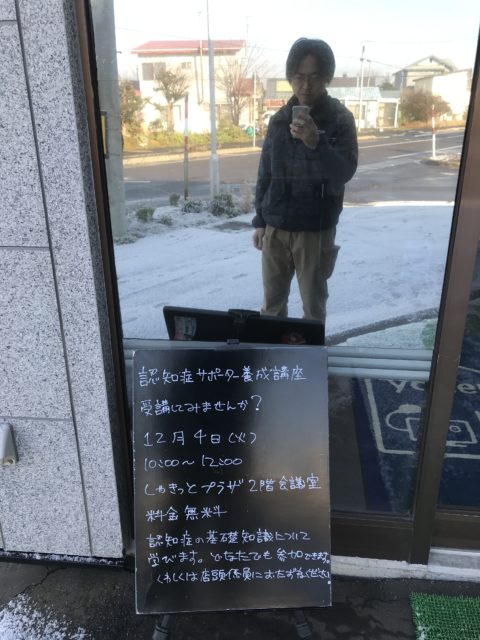 認知症サポーター養成講座
受講してみませんか?
12月4日(火)
10:00〜12:00
しゃきっとプラザ2階会議室
料金無料
認知症の基礎知識について
学びます。どなたでも参加できます。
くわしくは店頭係員におたずねください